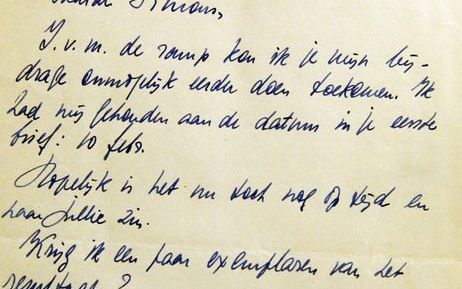 Simons,
I.v.m. de ramp kon ik je mijn bij-
drage onmogelijk eerder doen toekomen. Ik
had mij gehouden aan de datum in je eerste
brief: 10 febr.
Hopelijk is het nu toch nog op tijd en
naar jullie zin.
Krijg ik een paar exemplaren van het
resultaat?